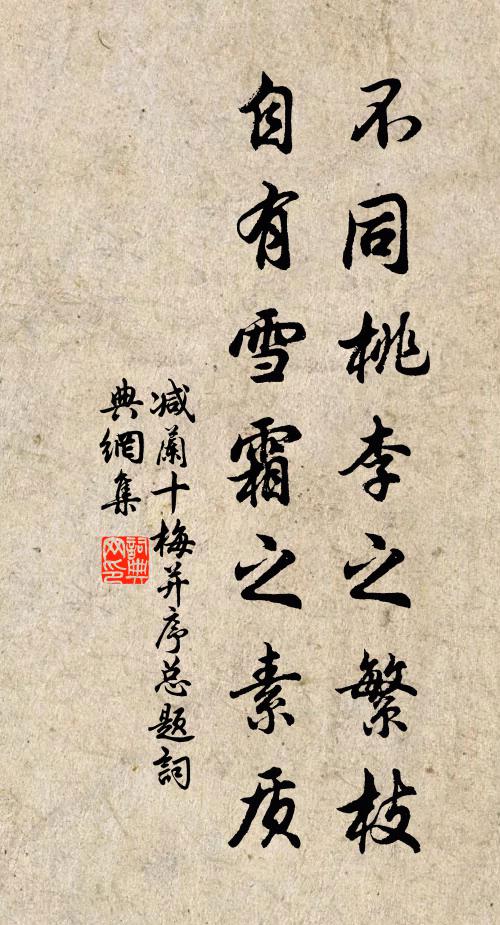 不同桃李之繁枝
自有雪霜之素质
减蘭十梅并序总题詞
典網集
詞典网印